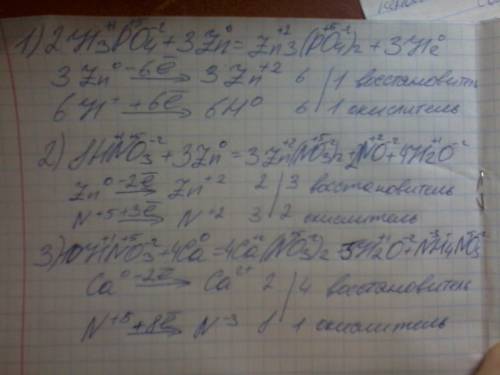 1) 2H₃⁺¹P⁺⁵O₄⁻² + 3Zn⁰ = Zn₃⁺²(P⁺⁵O₄⁻²)₂ + 3H₂⁰
3Zn⁰ -6ē → 3Zn⁺² 6 | 1 восстановитель
6H⁺ +6ē → 6H⁰ 6 | 1 окислитель
2) 8H⁺¹N⁺⁵O₃⁻² + 3Zn⁰ = 3Zn⁺²(N⁺⁵O₃⁻²)₂ + 2N⁺²O⁻² + 4H₂⁺¹O⁻²
Zn⁰ -2ē → Zn⁺² 2 | 3 восстановитель
N⁺⁵ +3ē → N⁺² 3 | 2 окислитель
3) 10H⁺¹N⁺⁵O₃⁻² + 4Ca⁰ = 4Ca⁺²(N⁺⁵O₃⁻²)₂ + 3H₂⁺¹O⁻² + N⁻³H₄⁺¹N⁺⁵O₃⁻²
Ca⁰ -2ē → Ca²⁺ 2 | 4 восстановитель
N⁺⁵ +8ē → N⁻³ 8 | 1 окислитель